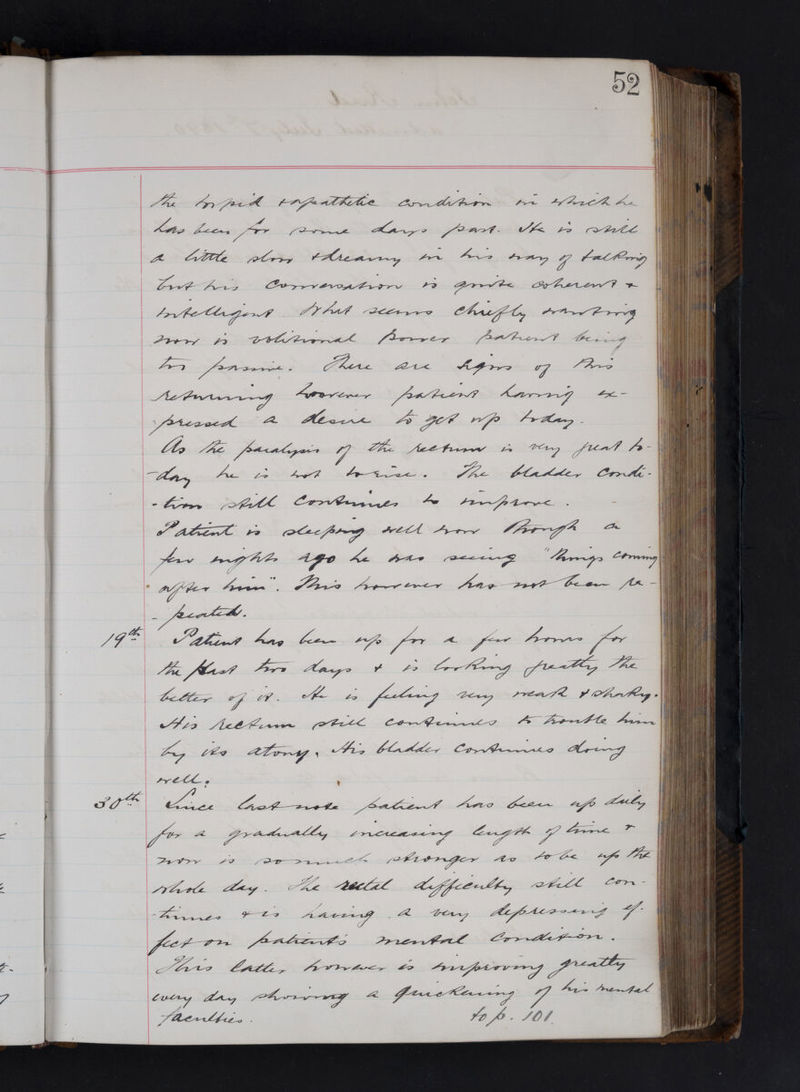 52
the torpid & apathetic condition in which he
has been for some days past. He is still
a little slow & dreamy in his way of talking
but his conversation is quite coherent &
intelligent. What seems chiefly wanting
now is volitional power patient being
too passive. There are signs of this
returning however patient having ex-
-pressed a desire to get up today.
As the paralysis of the rectum is very great to-
-day he is not to rise. The bladder condi-
-tion still continues to improve.
Patient is sleeping well now though a
few nights ago he was seeing "things coming
after him". This however has not been re-
-peated.
19th Patient has been up for a few hours for
the past two days & is looking greatly the
better of it. He is feeling very weak & shaky.
His rectum still continues to trouble him
by its atony. His bladder continues doing
well.
30th Since last note patient has been up daily
for a gradually increasing length of time &
now is so much stronger as to be up the
whole day. The rectal difficulty still con-
-tinues & is having a very depressing ef-
fect on patient's mental condition.
This latter however is improving greatly
every day showing a quickening of his mental
faculties. to p. 101.